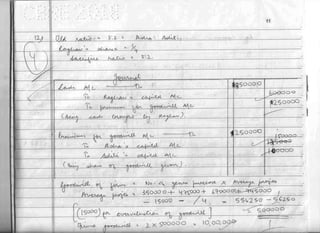 11
12) Old ratio = 5:2 = Aisha : Aditi
Raghav's share = 1/4
Sacrifice ratio = 5:2
Journal
Cash A/c Dr 850000
To Raghav's capital A/c 600000
To premium for goodwill A/c 250000
(being cash brought by Raghav)
Premium for goodwill A/c Dr 250000
To capital A/c
To Aditi's capital A/c
(being share of goodwill given)
Goodwill of firm = No. of years purchase x Average profits
Average profits = 350000 + 475000 + 670000
- 15000 / 4 = 556250 - 56250
(15000) for overvaluation of goodwill = 500000
goodwill = 2 x 500000 = 10,00,000